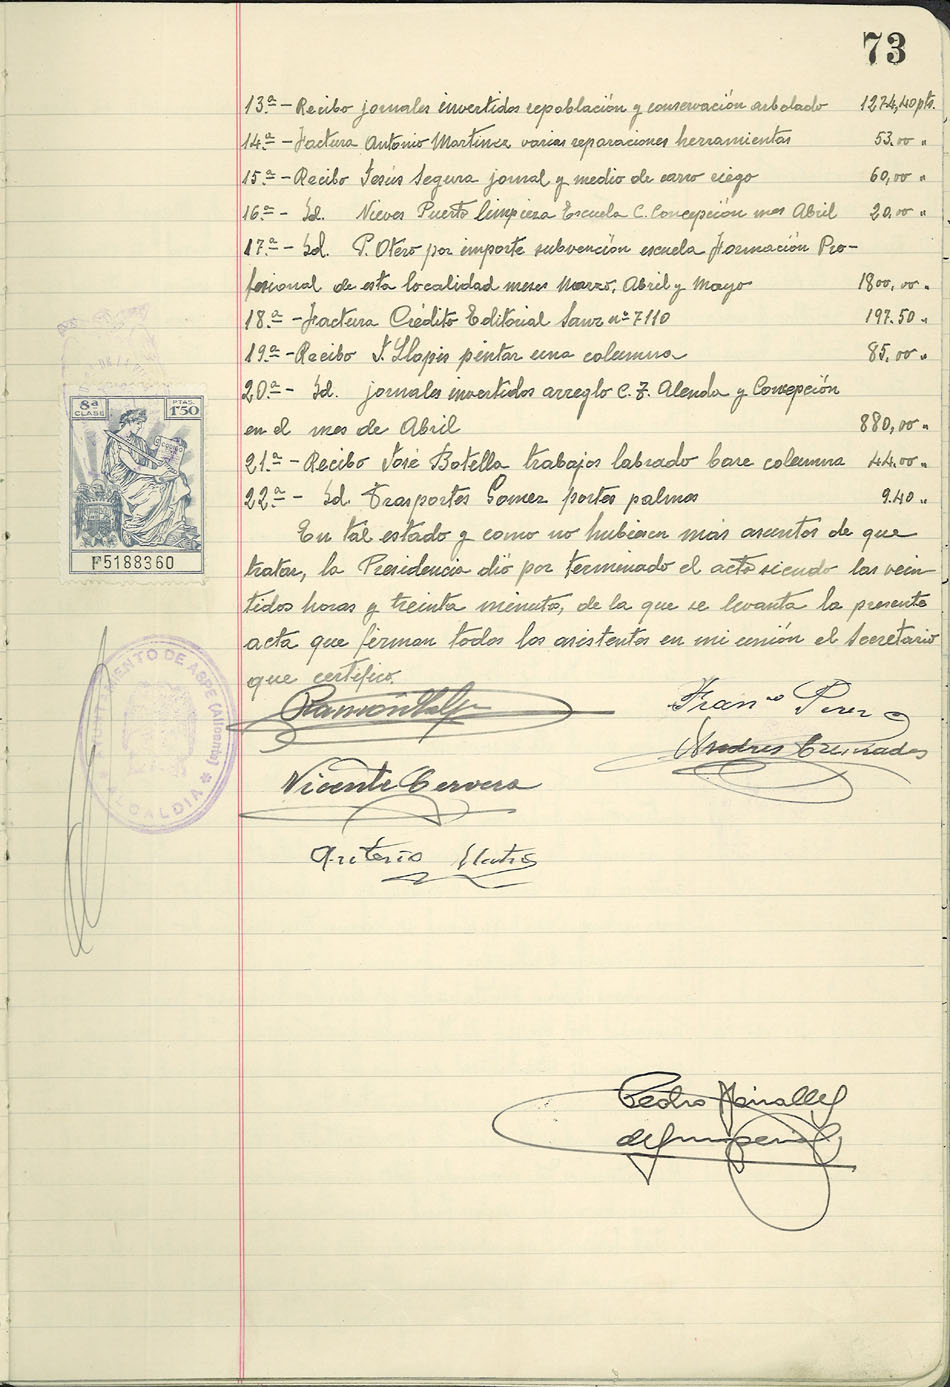 73
13.ª - Recibo jornales invertidos repoblación y conservación arbolado 1274,40 pts.
14.ª - Factura Antonio Martinez varias reparaciones herramientas 53.00 "
15.ª - Recibo Jesús Segura jornal y medio de carro riego 60,00 "
16.ª - Id. Nieves Puerto limpieza Escuela C. Concepción mes Abril 20,00 "
17.ª - Id. P. Otero por importe subvención escuela Formación Pro-
fesional de esta localidad meses Marzo, Abril y Mayo 1800,00 "
18.ª - Factura Crédito Editorial Sanz nº 7110 197.50 "
19.ª - Recibo J. Llopis pintar una columna 85,00 "
20.ª - Id. jornales invertidos arreglo C. F. Alenda y Concepción
en el mes de Abril 880,00 "
21.ª - Recibo José Botella trabajos labrado base columna 44.00 "
22.ª - Id Trasportes Gomez portes palmas 9.40 "
En tal estado y como no hubiesen más asuntos de que
tratar, la Presidencia dió por terminado el acto siendo las vein-
tidos horas y treinta minutos, de la que se levanta la presente
acta que firman todos los asistentes en mi unión el Secretario
que certifico.
8ª CLASE
PTAS. 1'50
F5188360
AYUNTAMIENTO DE ASPE (Alicante)
ALCALDIA
Ramón
Franco Perez
Andres Cremades
Vicente Cervera
Pedro